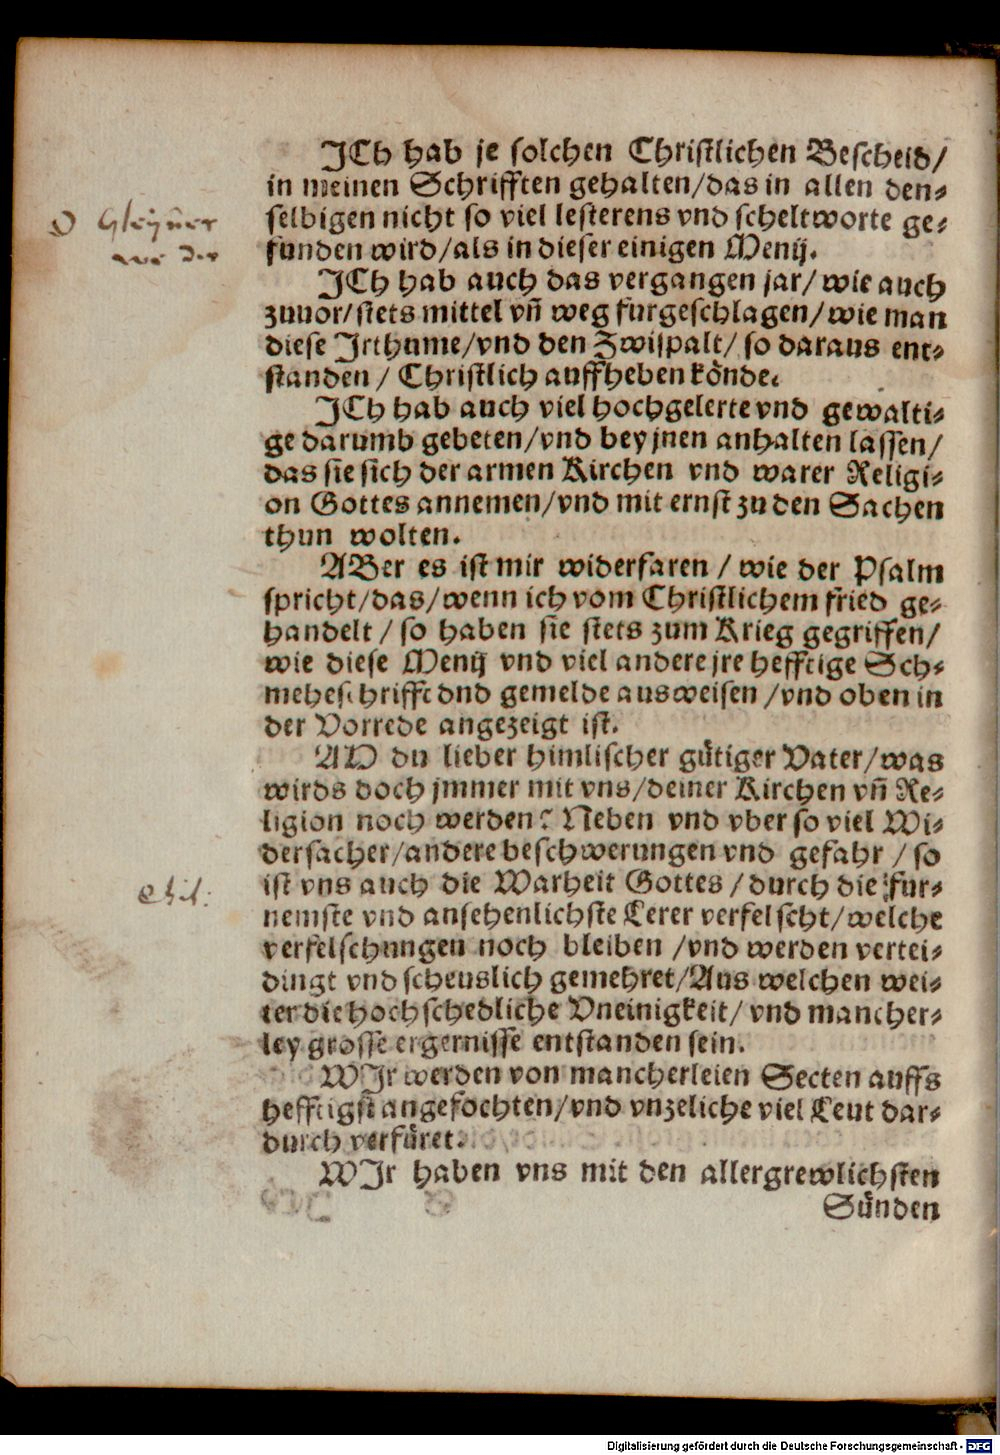 JCh hab je solchen Christlichen Bescheid/
in meinen Schrifften gehalten/das in allen den⸗
selbigen nicht so viel lesterens vnd scheltworte ge⸗
funden wird/als in dieser einigen Menij.
JCh hab auch das vergangen jar/ wie auch
zuuor/stets mittel vñ weg furgeschlagen/wie man
diese Jrthume/vnd den Zwispalt/ so daraus ent⸗
standen / Christlich auffheben könde.
JCh hab auch viel hochgelerte vnd gewalti⸗
ge darumb gebeten/vnd bey jnen anhalten lassen/
das sie sich der armen Kirchen vnd warer Religi⸗
on Gottes annemen/vnd mit ernst zu den Sachen
thun wolten.
ABer es ist mir widerfaren / wie der Psalm
spricht/das/wenn ich vom Christlichem fried ge⸗
handelt / so haben sie stets zum Krieg gegriffen/
wie diese Menij vnd viel andere jre hefftige Sch⸗
meheschrifft vnd gemelde ausweisen /vnd oben in
der Vorrede angezeigt ist.
AD du lieber himlischer gütiger Vater/was
wirds doch jmmer mit vns/deiner Kirchen vñ Re⸗
ligion noch werden? Neben vnd vber so viel Wi⸗
dersacher/andere beschwerungen vnd gefahr / so
ist vns auch die Warheit Gottes / durch die fur⸗
nemste vnd ansehenlichste Lerer verfelscht/welche
verfelschungen noch bleiben /vnd werden vertei⸗
dingt vnd scheuslich gemehret/Aus welchen wei⸗
ter die hochschedliche Vneinigkeit/ vnd mancher⸗
ley grosse ergernisse entstanden sein.
WJr werden von mancherleien Secten auffs
hefftigst angefochten/vnd vnzeliche viel Leut dar⸗
durch verfüret.
WJr haben vns mit den allergrewlichsten
Sünden
Digitalisierung gefördert durch die Deutsche Forschungsgemeinschaft - DFG